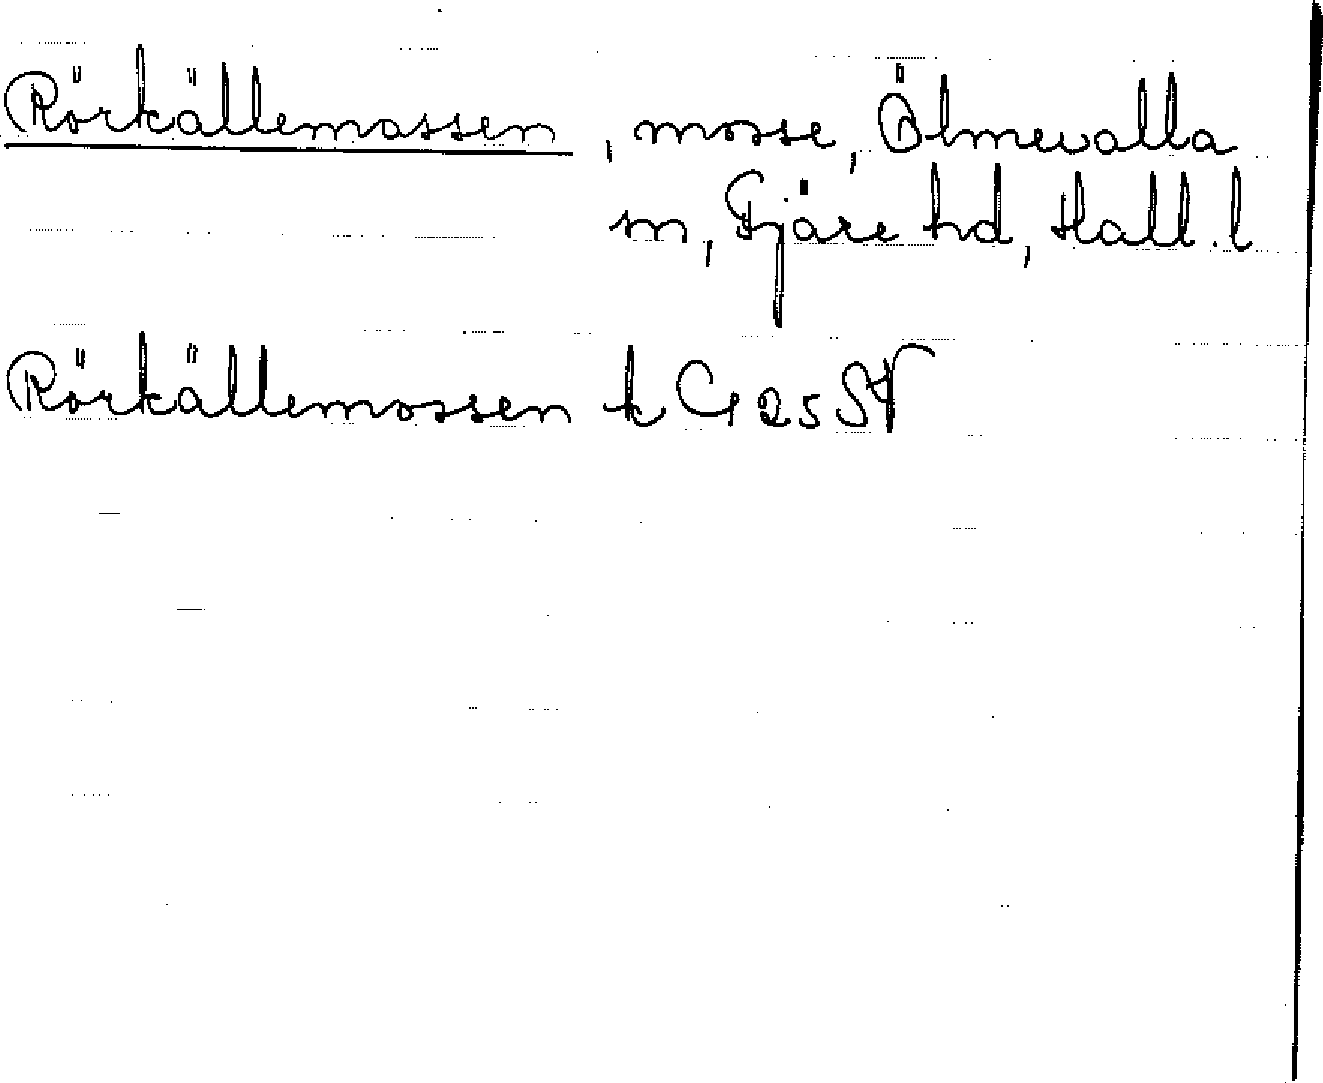 Rörkällemossen, mosse, Ölmevalla
sn, Fjäre hd, Hall. l
Rörkällemossen k G 25 SV